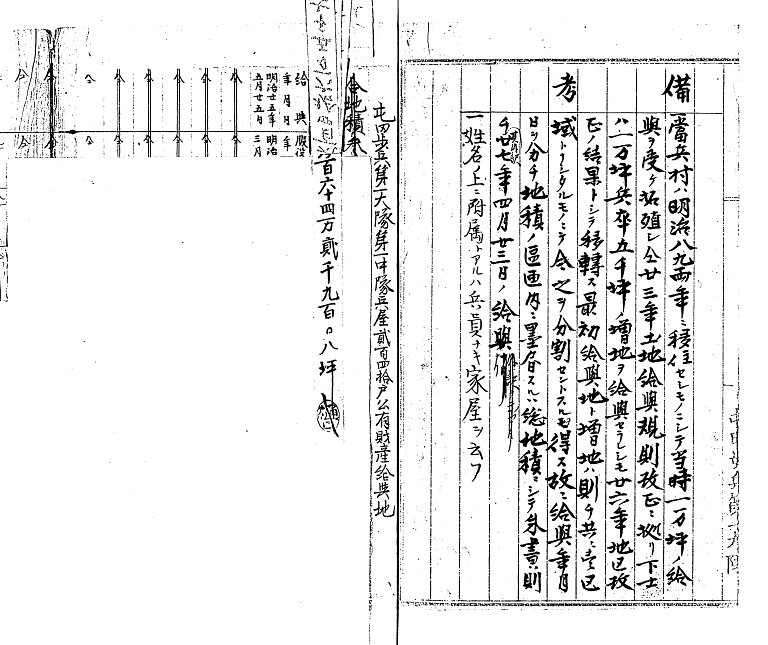 備考
當兵村ハ明治八九両年ニ移住セシモノニシテ当時一万坪ノ給
與ヲ受ケ拓殖シ仝廿三年土地給與規則改正ニ拠リ下士
ハ二万坪兵卒五千坪ノ増地ヲ給與セラレシモ廿六年地区改
正ノ結果トシテ移轉ス最初給與地ト増地ハ則チ共ニ壱区
域トナシタルモノニテ今之ヲ分割セントスルモ得ス故ニ給與年月
日ヲ分チ地積ノ區画内ニ墨書スルハ総地積ニシテ朱書ハ則
チ廿七年四月廿三日ノ給與
一姓名ノ上ニ附属トアルハ兵員ナキ家屋ヲ云フ
屯田歩兵第一大隊第一中隊兵屋貳百四拾戸公有財産給與地
合地積
百六十四万貳千九百〇八坪
給與
年月日
明治廿五年
五月廿五日
服役
年
明治
三月
仝
仝
仝
仝
仝
仝
仝
仝
仝
仝
仝
仝
仝
仝